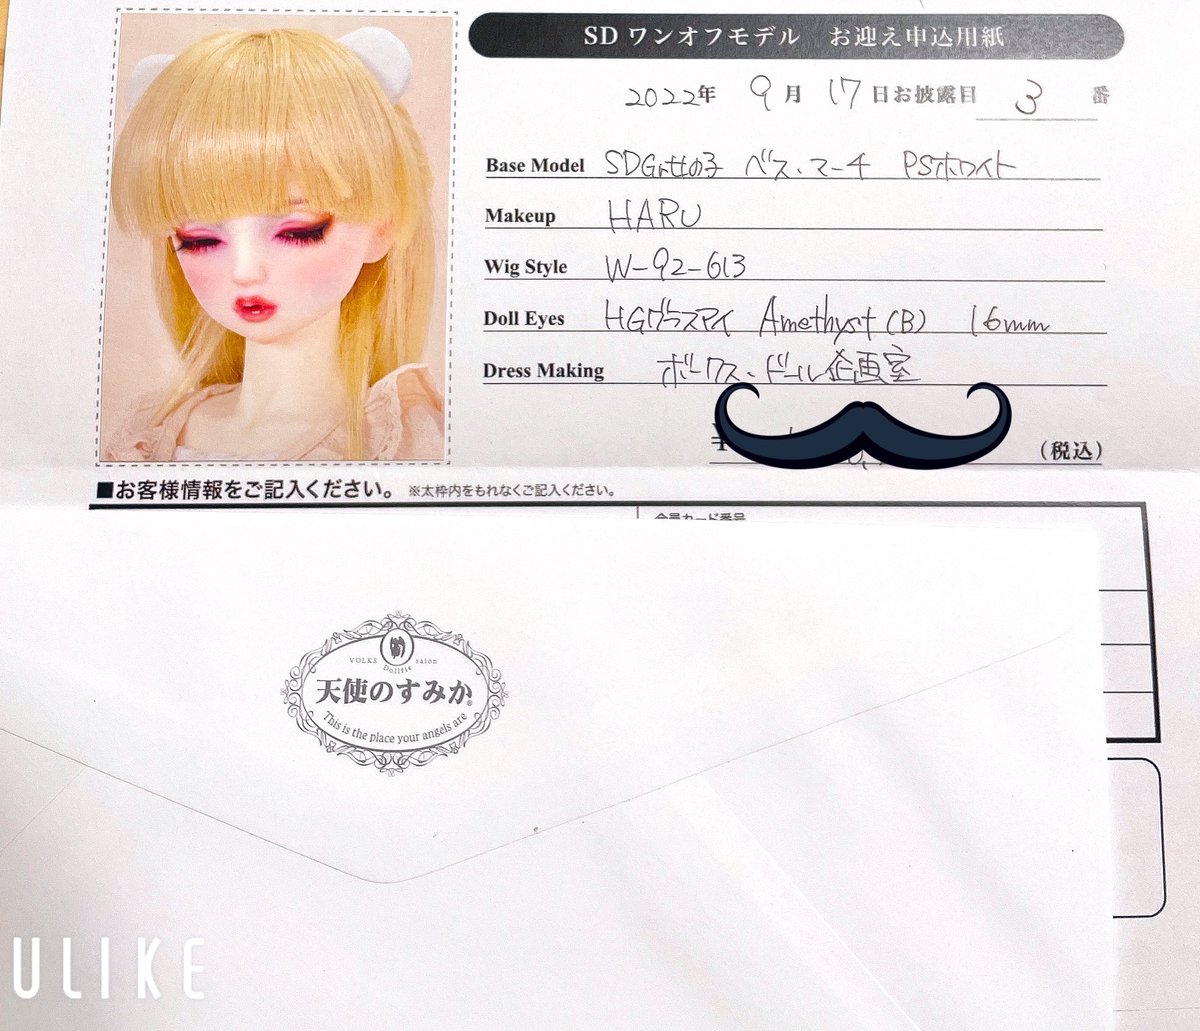 SD ワンオフモデル お迎え申込用紙
2022年 9月 17日お披露目 3 番
Base Model SDGr女の子 ベス・マーチ PSホワイト
Makeup HARU
Wig Style W-92-613
Doll Eyes HGグラスアイ Amethyst (B) 16mm
Dress Making ボークス・ドール企画室
¥ (税込)
■お客様情報をご記入ください。 ※太枠内をもれなくご記入ください。
会員カード番号
VOLKS Dollfie salon
天使のすみか®
This is the place your angels are
ULIKE